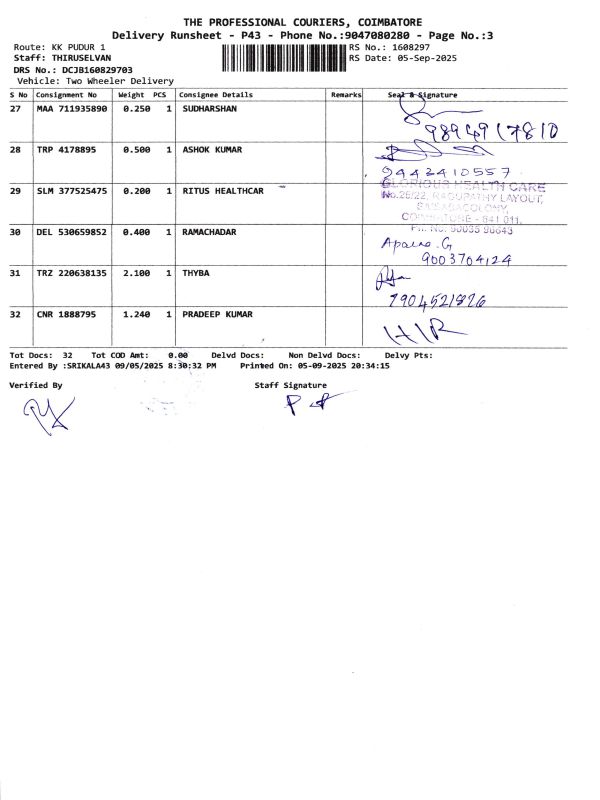 THE PROFESSIONAL COURIERS, COIMBATORE
Delivery Runsheet - P43 - Phone No.:9047080280 - Page No.:3
Route: KK PUDUR 1 RS No.: 1608297
Staff: THIRUSELVAN RS Date: 05-Sep-2025
DRS No.: DCJB160829703
Vehicle: Two Wheeler Delivery
S No Consignment No Weight PCS Consignee Details Remarks Seal & Signature
27 MAA 711935890 0.250 1 SUDHARSHAN
9894917810
28 TRP 4178895 0.500 1 ASHOK KUMAR
9442410557
29 SLM 377525475 0.200 1 RITUS HEALTHCAR
GLORIOUS HEALTH CARE
No.25/22, RAGUPATHY LAYOUT,
SAIBABACOLONY,
COIMBATORE - 641 011.
30 DEL 530659852 0.400 1 RAMACHADAR
G
9003704124
31 TRZ 220638135 2.100 1 THYBA
7904521876
32 CNR 1888795 1.240 1 PRADEEP KUMAR
HIR
Tot Docs: 32 Tot COD Amt: 0.00 Delvd Docs: Non Delvd Docs: Delvy Pts:
Entered By :SRIKALA43 09/05/2025 8:30:32 PM Printed On: 05-09-2025 20:34:15
Verified By Staff Signature